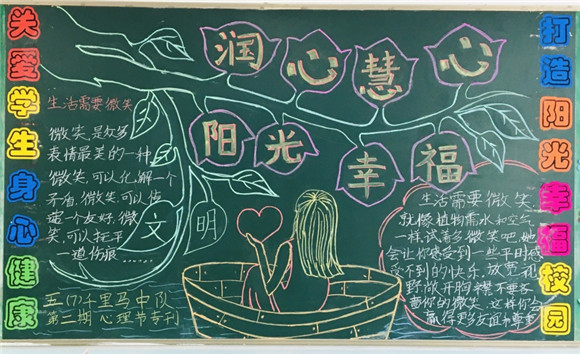 关爱学生身心健康
润心慧心
阳光幸福
打造阳光幸福校园
生活需要微笑
微笑,是众多
表情最美的一种
微笑,可以化解一个
矛盾,微笑,可以传
递一个友好,微
笑,可以抚平
一道伤痕
文明
五(7)千里马中队
第二期心理节专刊
生活需要微笑
就像植物需水和空气
一样,试着多微笑吧,她
会让你感受到一些平时感
受不到的快乐,放宽视
野,敞开胸襟,不要吝
啬你的微笑,这样你会
赢得更多友谊和尊重